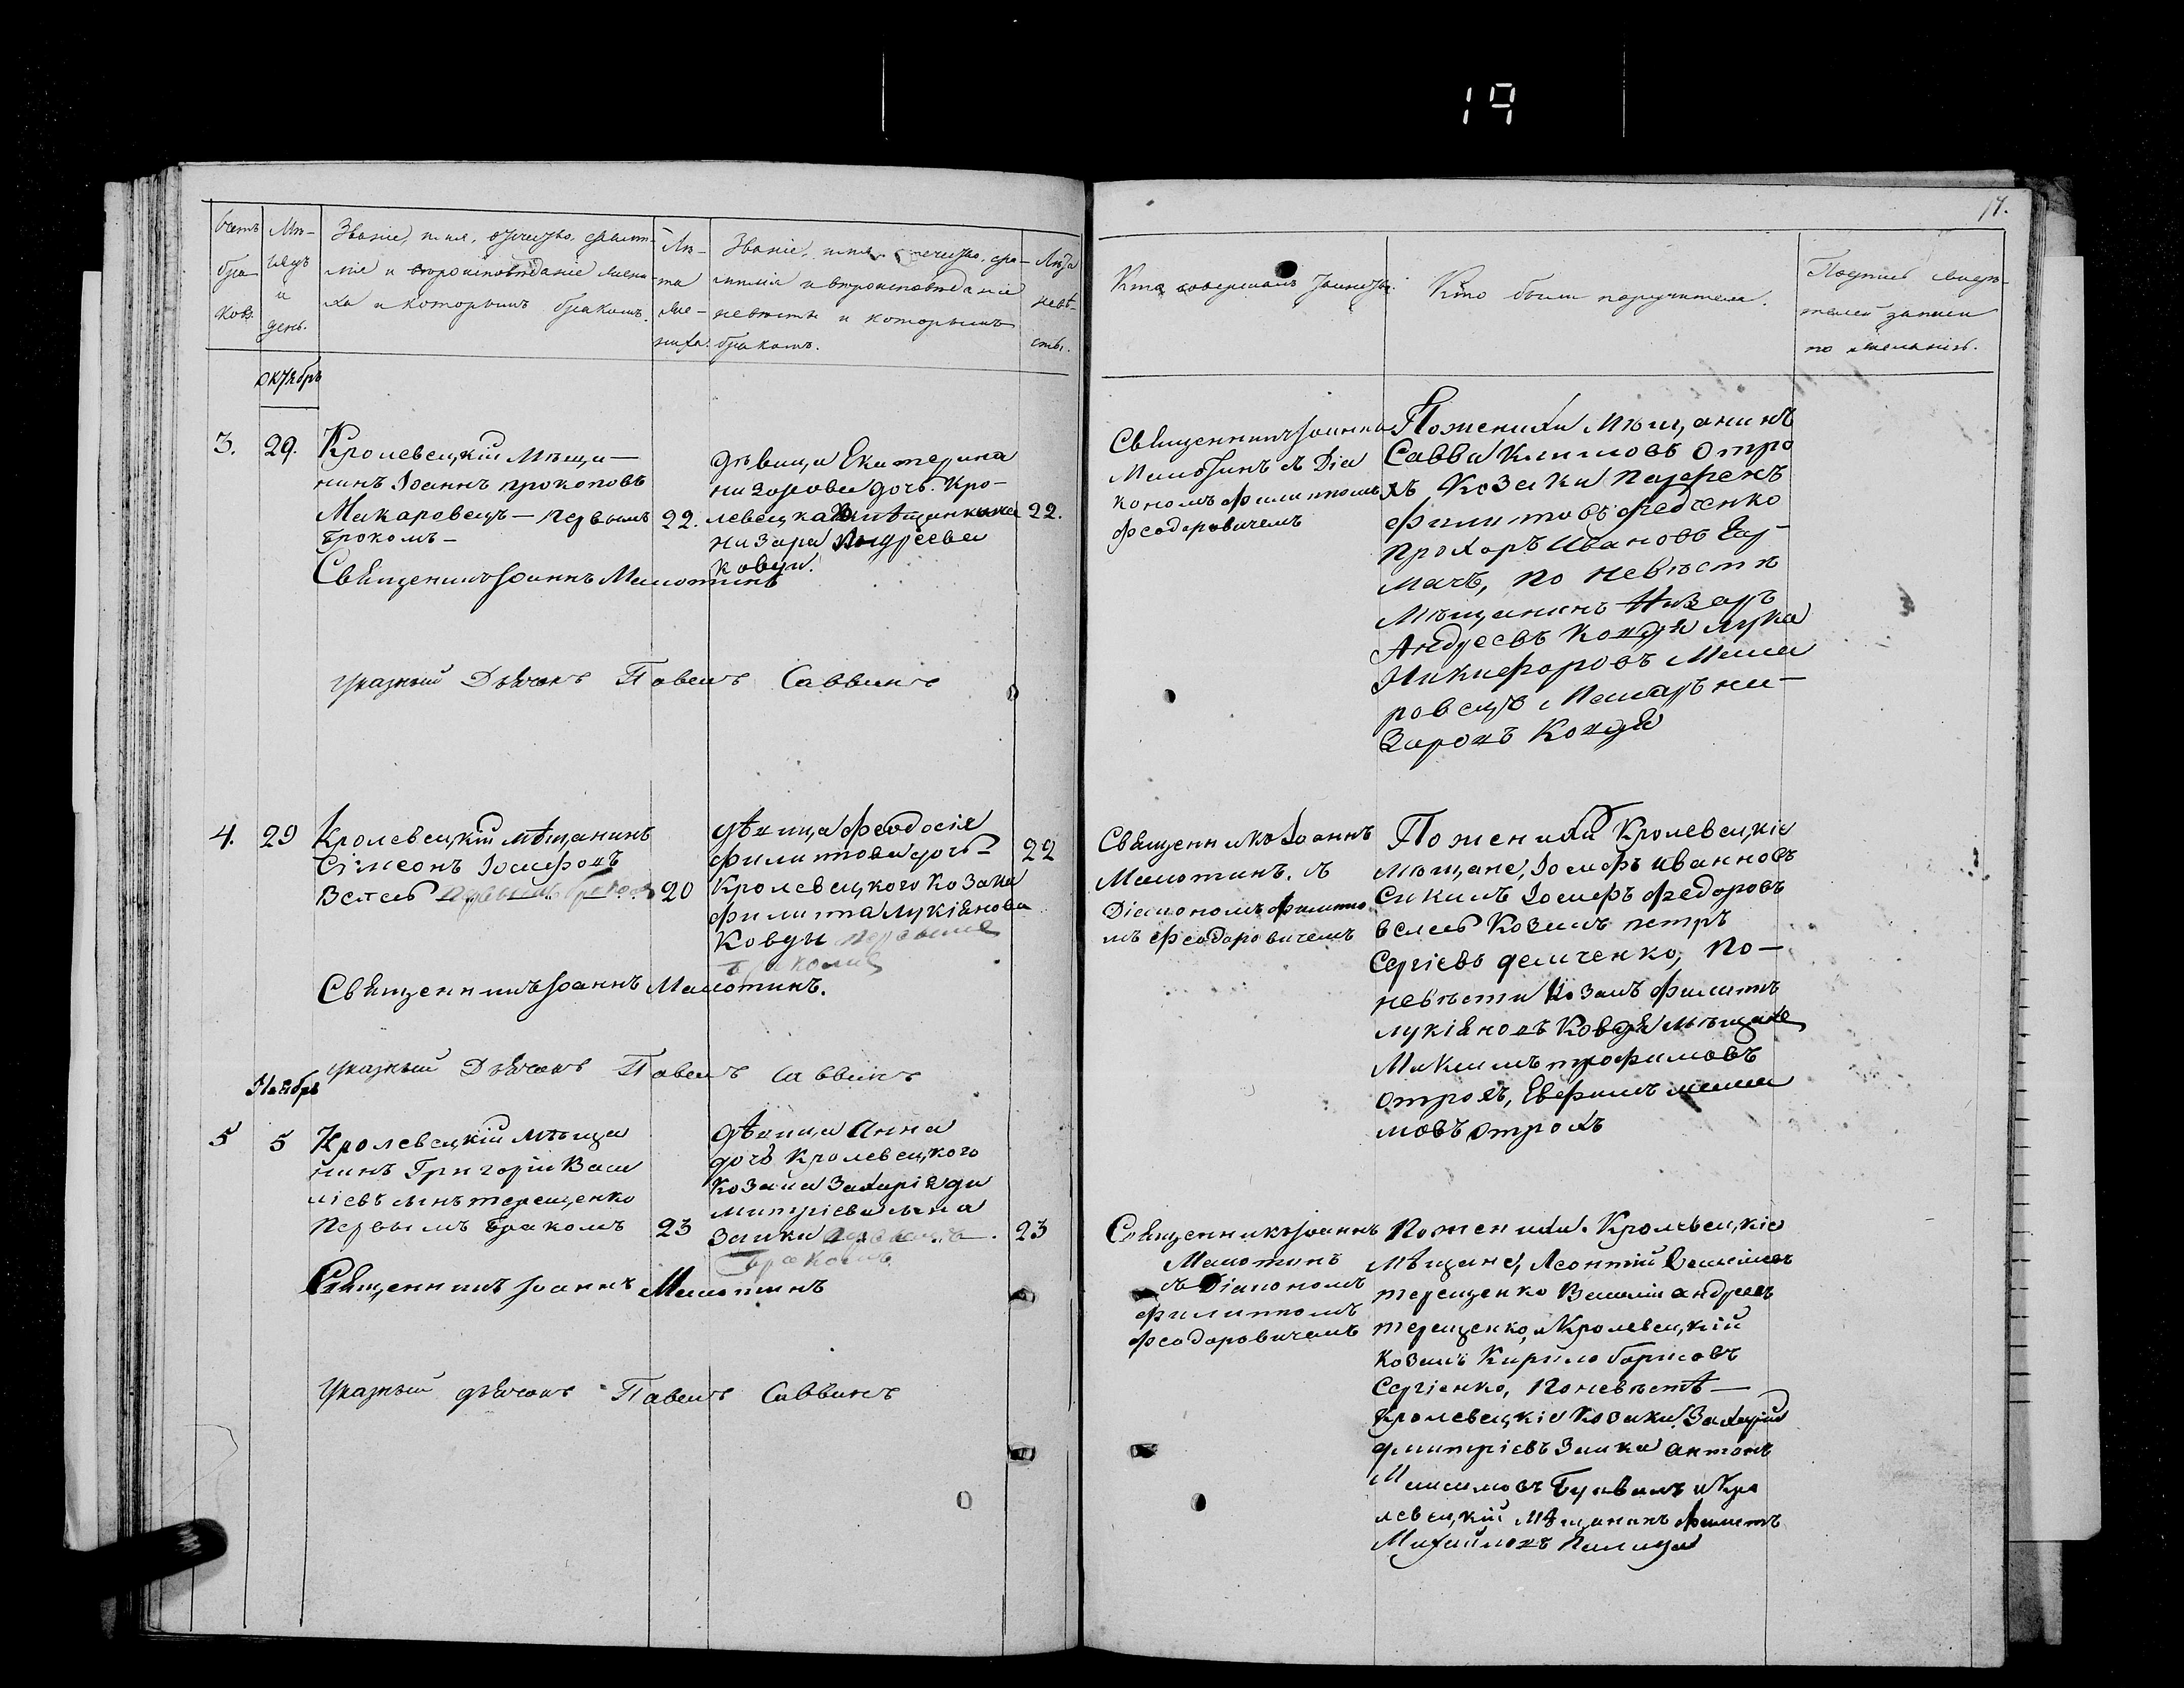 19
17.
Счетъ бра ковъ.
Мѣ- сяцъ и день.
Званіе, имя, отчество, фамил-
лія и вѣроисповѣданіе жени-
ха и которымъ бракомъ.
Лѣ- та же- ниха.
Званіе, имя, отчество, фа-
милія и вѣроисповѣданіе
невѣсты и которымъ
бракомъ.
Лѣта невѣ- сты.
Кто совершалъ таинство.
Кто были поручители.
Подпись свидѣ-
телей записи
по желанію.
Октябрь
3. 29.
Кролевецкій мѣща-
нинъ Іоаннъ Прокоповъ
Макаровецъ - первымъ 22.
бракомъ -
Священникъ Іоаннъ Малютинъ
указный Дьячокъ Павелъ Саввинъ
дѣвица Екатерина
Назарова дочь Кро-
левецкаго мѣщанина 22.
Назара Андреева
Ковди.
Священникъ Іоаннъ
Малютинъ съ Діа
кономъ Филиппомъ
Феодоровичемъ
По женихи мѣщанинъ
Савва Климовъ Отро
хъ Козаки Парфенъ
Филиповъ Федченко
Прохоръ Ивановъ
мачъ, по невѣстѣ
мѣщанинъ Назаръ
Андреевъ Ковдя Лука
Никифоровъ Мака
ровецъ На-
заровъ Ковдя
4. 29
Кролевецкій мѣщанинъ
Сімеонъ Іосифовъ
первымъ браком 20
Священникъ Іоаннъ Малютинъ.
указный Дьячокъ Павелъ Саввинъ
дѣвица Феодосія
Филипова дочь 22
Кролевецкого Козака
Филипа Лукіянова
Ковды первымъ
бракомъ
Священникъ Іоаннъ
Малютинъ. съ
Діакономъ Филиппо
мъ Феодоровичемъ
По женихи Кролевецкіе
мѣщане, Іосифъ Ивановъ
Іосифъ Федоровъ
Козакъ Петръ
Сергіевъ Демченко, По-
невѣсти Козакъ Филиппъ
Лукіяновъ Ковдя мѣщане
Максимъ Трофимовъ
Отрохъ, Ефимъ
мовъ Отрохъ
Ноябрь
5 5
Кролевецкій мѣща
нинъ Григорій Васи
ліевъ сынъ Терещенко
Первымъ бракомъ 23
Священникъ Іоаннъ Малютинъ
Указный дьячокъ Павелъ Саввинъ
дѣвица Анна
дочь Кролевецкого
Козака Захарія Ди
митріева сына
Заики первымъ. 23
бракомъ
Священникъ Іоаннъ
Малютинъ
съ Діакономъ
Филиппомъ
Феодоровичемъ
По женихи. Кролевецкіе
мѣщане, Леонтій Васильевъ
Терещенко Василій Андреевъ
Терещенко, и Кролевецкій
козакъ Кирило Борисовъ
Сергіенко, По невѣстѣ -
Кролевецкіе Козаки Захарій
Дмитріевъ Заика Антонъ
Максимовъ и Кро
левецкій мѣщанинъ Филиппъ
Михайловъ